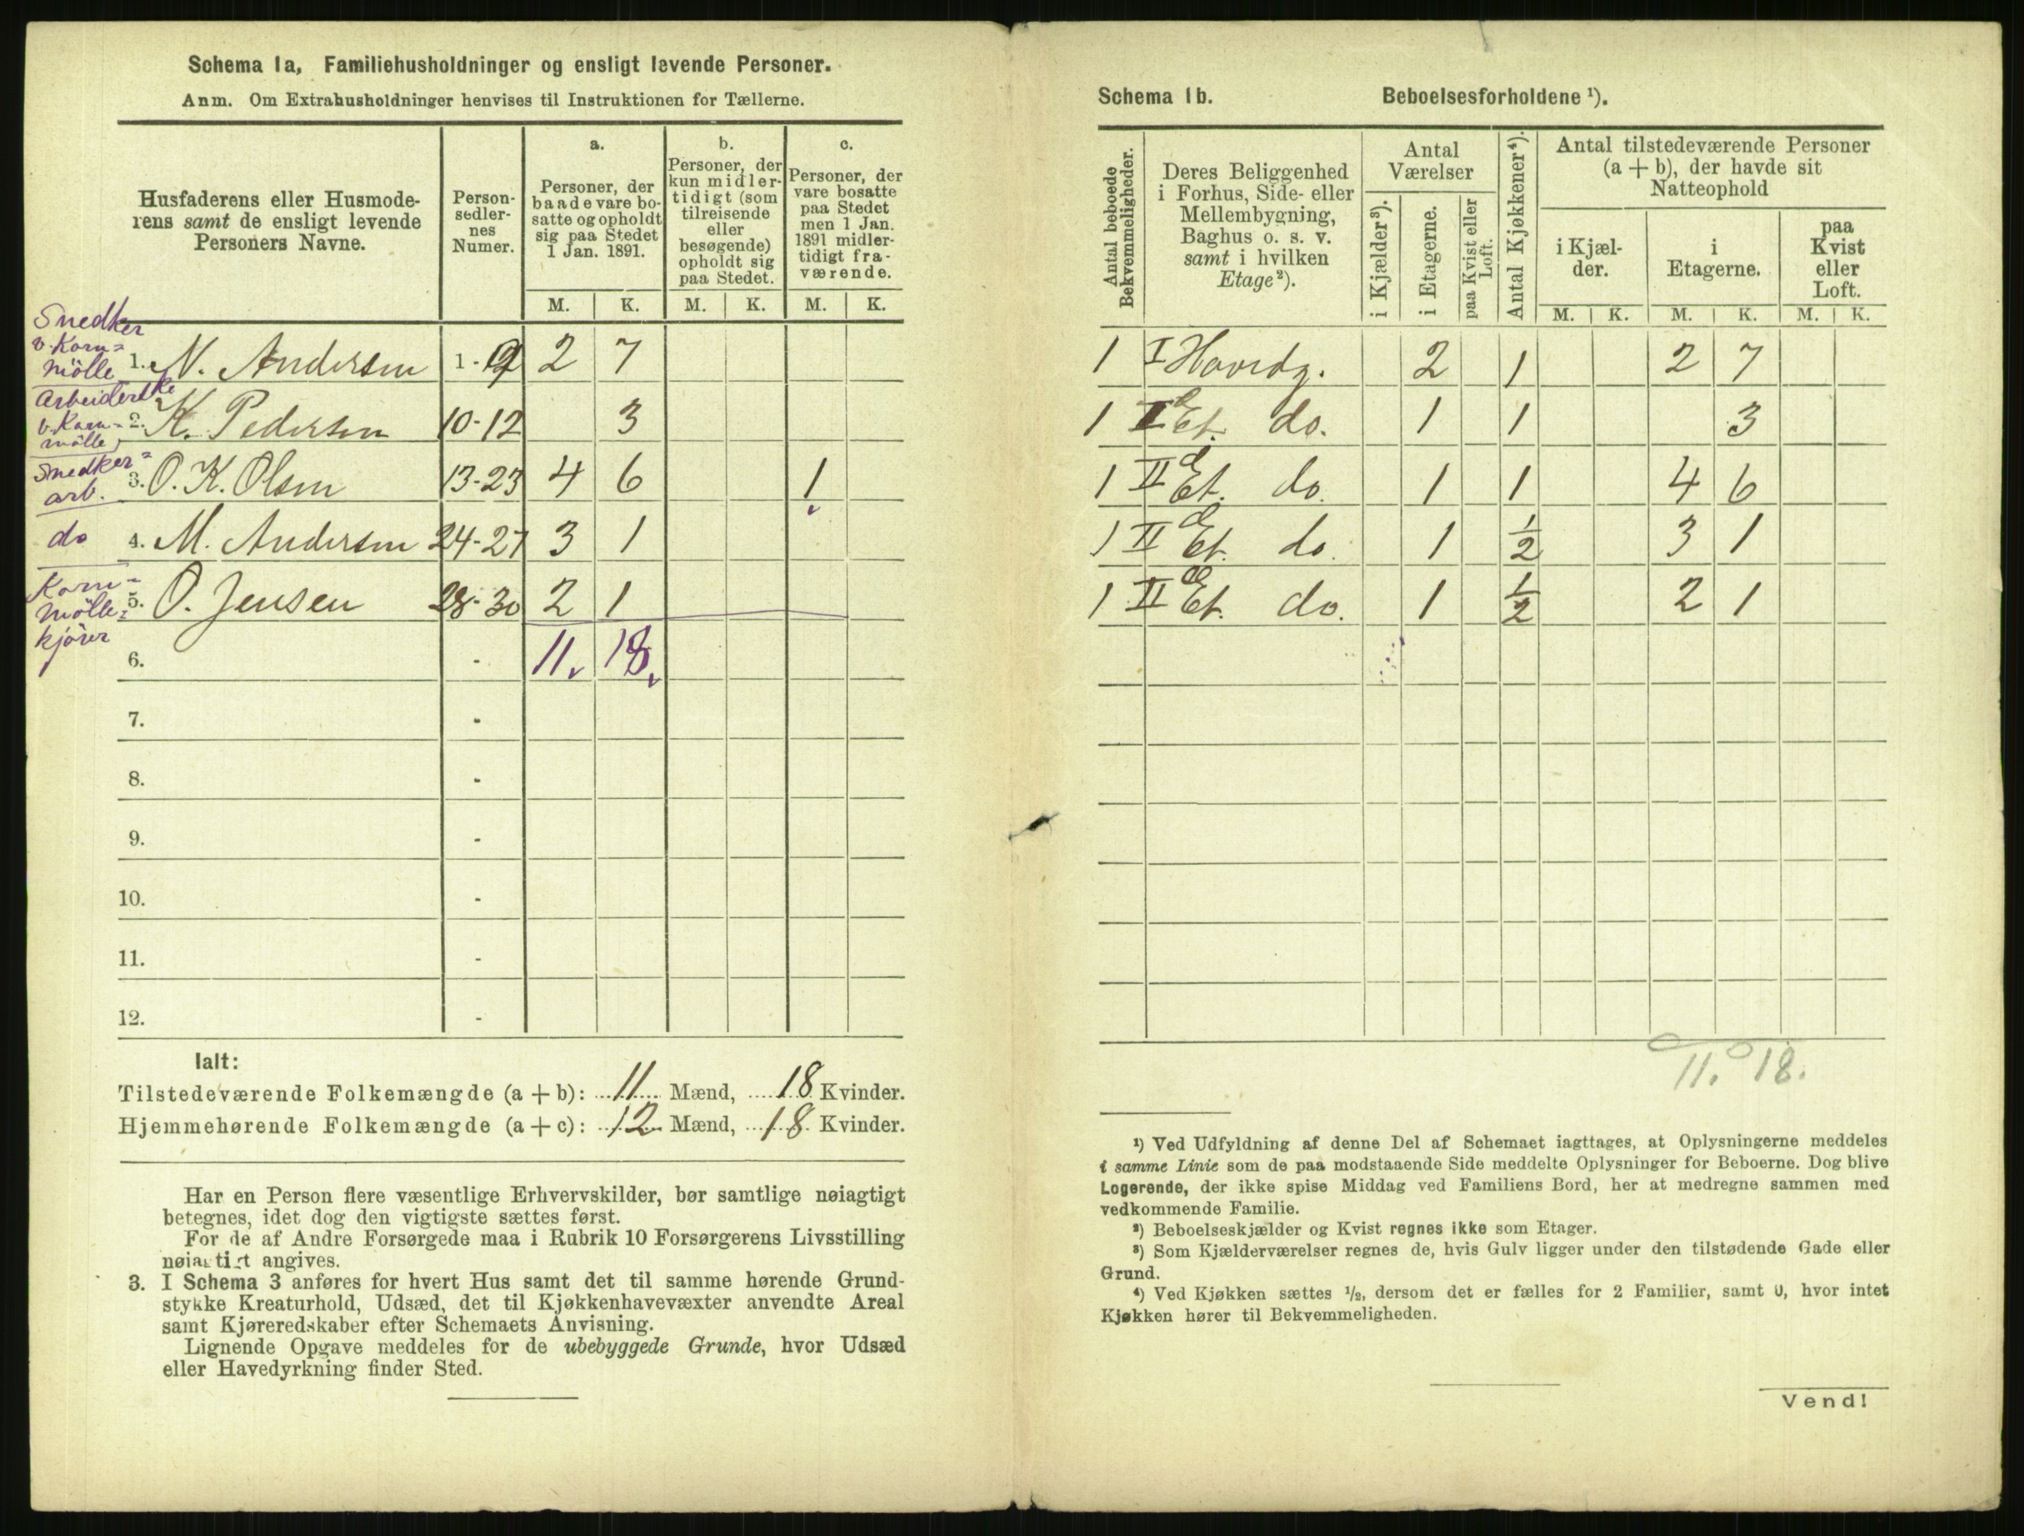 Schema 1a, Familiehusholdninger og ensligt levende Personer.
Anm. Om Extrahusholdninger henvises til Instruktionen for Tællerne.
Husfaderens eller Husmode-
rens samt de ensligt levende
Personers Navne.
Person-
sedler-
nes
Numer.
a.
Personer, der
baade vare bo-
satte og opholdt
sig paa Stedet
1 Jan. 1891.
b.
Personer, der
kun midler-
tidigt (som
tilreisende
eller
besøgende)
opholdt sig
paa Stedet.
c.
Personer, der
vare bosatte
paa Stedet
men 1 Jan.
1891 midler-
tidigt fra-
værende.
M. K. M. K. M. K.
Snedker
v. Korn=
mölle 1. N. Andersen 1-9 2 7
v. Korn=
mölle 2. K. Pedersen 10-12 3
Snedker=
arb. 3. O. K. Olsen 13-23 4 6 1
do 4. M. Andersen 24-27 3 1
Korn=
mölle=
kjörer 5. O. Jensen 28-30 2 1
6. - 11. 18.
7. -
8. -
9. -
10. -
11. -
12. -
Ialt:
Tilstedeværende Folkemængde (a + b): 11 Mænd, 18 Kvinder.
Hjemmehørende Folkemængde (a + c): 12 Mænd, 18 Kvinder.
Har en Person flere væsentlige Erhvervskilder, bør samtlige nøiagtigt
betegnes, idet dog den vigtigste sættes først.
For de af Andre Forsørgede maa i Rubrik 10 Forsørgerens Livsstilling
nøiagtigt angives.
3. I Schema 3 anføres for hvert Hus samt det til samme hørende Grund-
stykke Kreaturhold, Udsæd, det til Kjøkkenhavevæxter anvendte Areal
samt Kjøreredskaber efter Schemaets Anvisning.
Lignende Opgave meddeles for de ubebyggede Grunde, hvor Udsæd
eller Havedyrkning finder Sted.
Schema 1b. Beboelsesforholdene ¹).
Antal beboede
Bekvemmeligheder.
Deres Beliggenhed
i Forhus, Side- eller
Mellembygning,
Baghus o. s. v.
samt i hvilken
Etage²).
Antal
Værelser
i Kjælder³).
i Etagerne.
paa Kvist eller
Loft.
Antal Kjøkkener⁴).
Antal tilstedeværende Personer
(a + b), der havde sit
Natteophold
i Kjæl-
der.
i
Etagerne.
paa
Kvist
eller
Loft.
M. K. M. K. M. K.
1 I Hovedg. 2 1 2 7
1 I Et. do. 1 1 3
1 II Et. do. 1 1 4 6
1 II Et. do. 1 1/2 3 1
1 II Et. do. 1 1/2 2 1
11. 18.
¹) Ved Udfyldning af denne Del af Schemaet iagttages, at Oplysningerne meddeles
i samme Linie som de paa modstaaende Side meddelte Oplysninger for Beboerne. Dog blive
Logerende, der ikke spise Middag ved Familiens Bord, her at medregne sammen med
vedkommende Familie.
²) Beboelseskjælder og Kvist regnes ikke som Etager.
³) Som Kjælderværelser regnes de, hvis Gulv ligger under den tilstødende Gade eller
Grund.
⁴) Ved Kjøkken sættes ½, dersom det er fælles for 2 Familier, samt 0, hvor intet
Kjøkken hører til Bekvemmeligheden.
Vend!